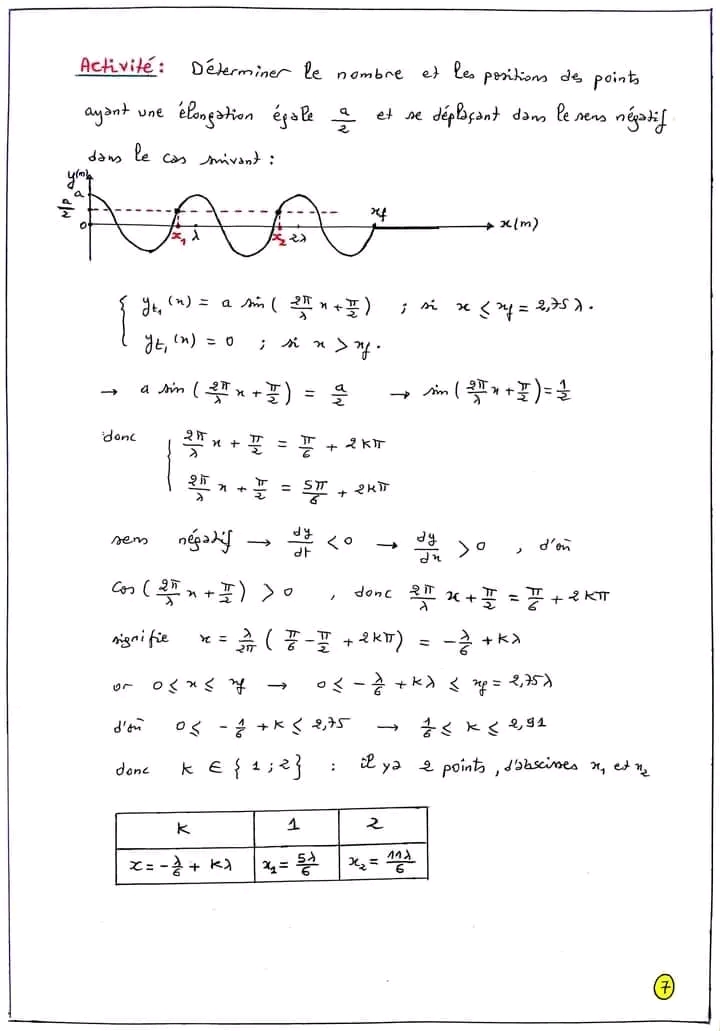 Activité : Déterminer le nombre et les positions des points
ayant une élongation égale a/2 et se déplaçant dans le sens négatif
dans le cas suivant :
y(m)
a
a/2
0
x₁ λ x₂ 2λ xf x(m)
{ yt₁(x) = a sin( 2π/λ x + π/2 ) ; si x ≤ xf = 2,75 λ.
yt₁(x) = 0 ; si x > xf.
→ a sin ( 2π/λ x + π/2 ) = a/2 → sin ( 2π/λ x + π/2 ) = 1/2
donc { 2π/λ x + π/2 = π/6 + 2Kπ
2π/λ x + π/2 = 5π/6 + 2Kπ
sens négatif → dy/dt < 0 → dy/dx > 0 , d'où
Cos ( 2π/λ x + π/2 ) > 0 , donc 2π/λ x + π/2 = π/6 + 2Kπ
signifie x = λ/2π ( π/6 - π/2 + 2Kπ ) = - λ/6 + Kλ
or 0 ≤ x ≤ xf → 0 ≤ - λ/6 + Kλ ≤ xf = 2,75λ
d'où 0 ≤ - 1/6 + K ≤ 2,75 → 1/6 ≤ K ≤ 2,91
donc K ∈ { 1 ; 2 } : il ya 2 points, d'abscisses x₁ et x₂
K 1 2
x = - λ/6 + Kλ x₁ = 5λ/6 x₂ = 11λ/6
7